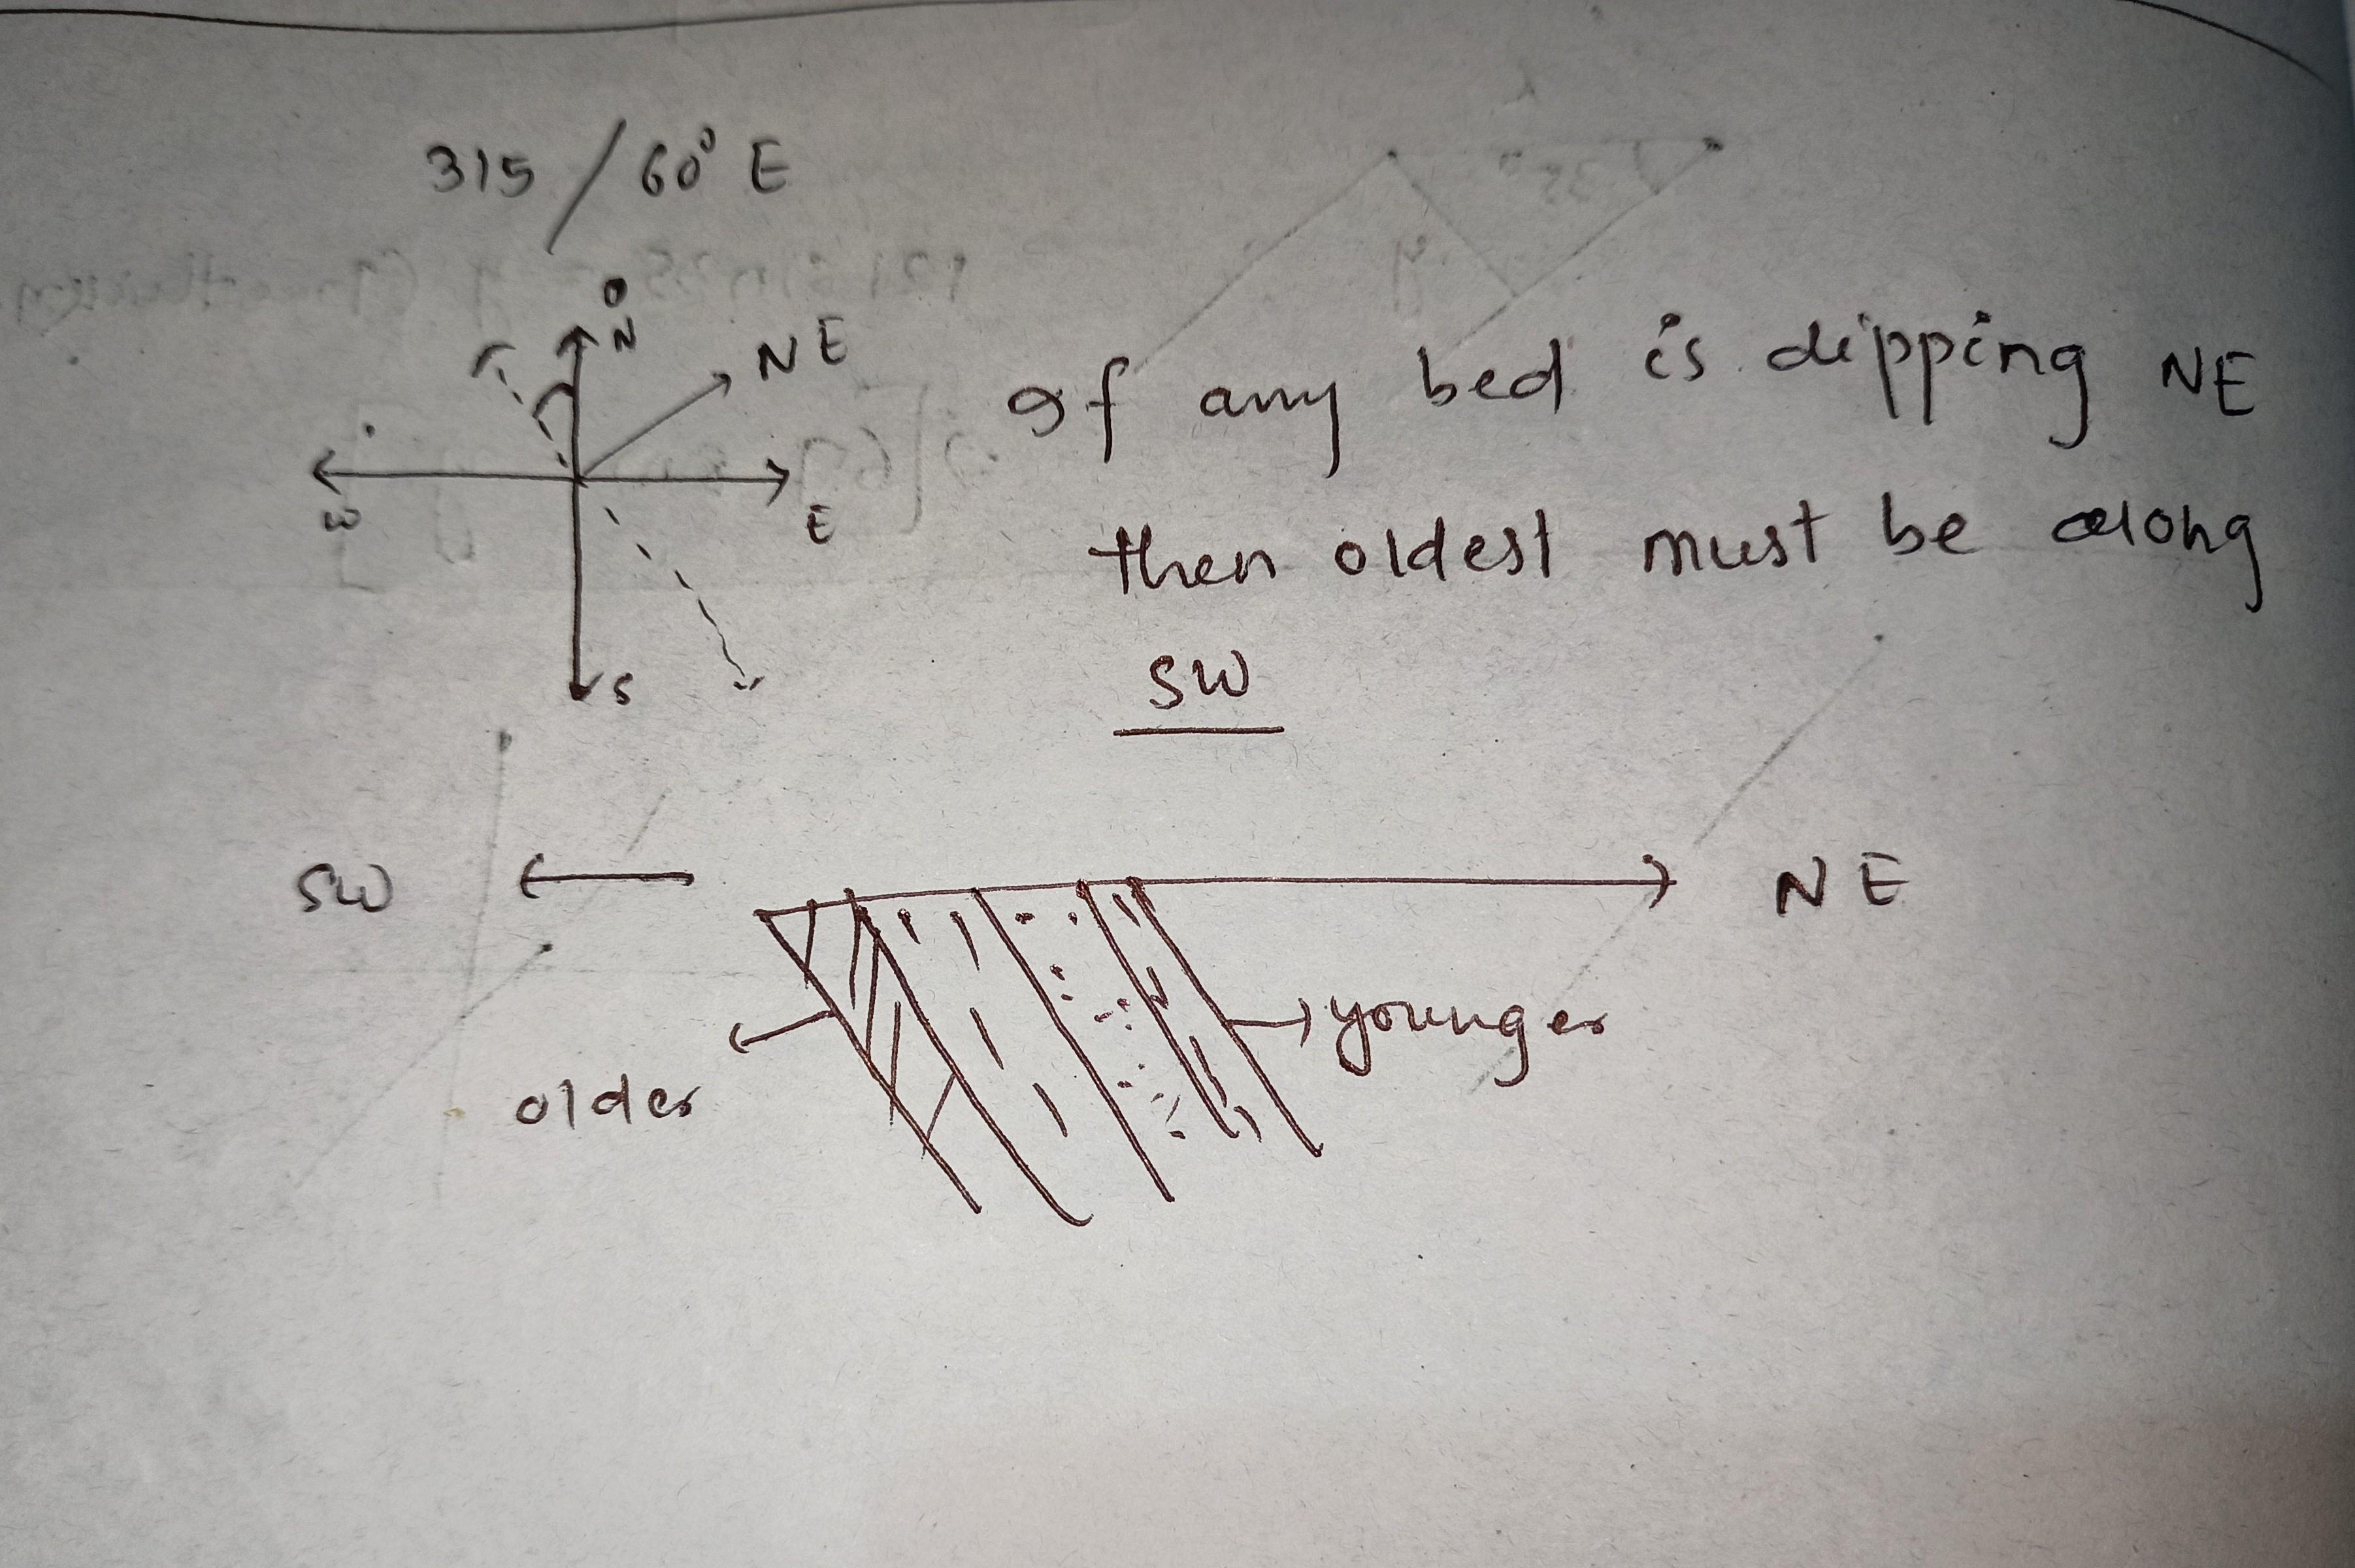 315 / 60° E
0
N
NE
W
E
S
If any bed is dipping NE
then oldest must be along
SW
SW
NE
older
younger